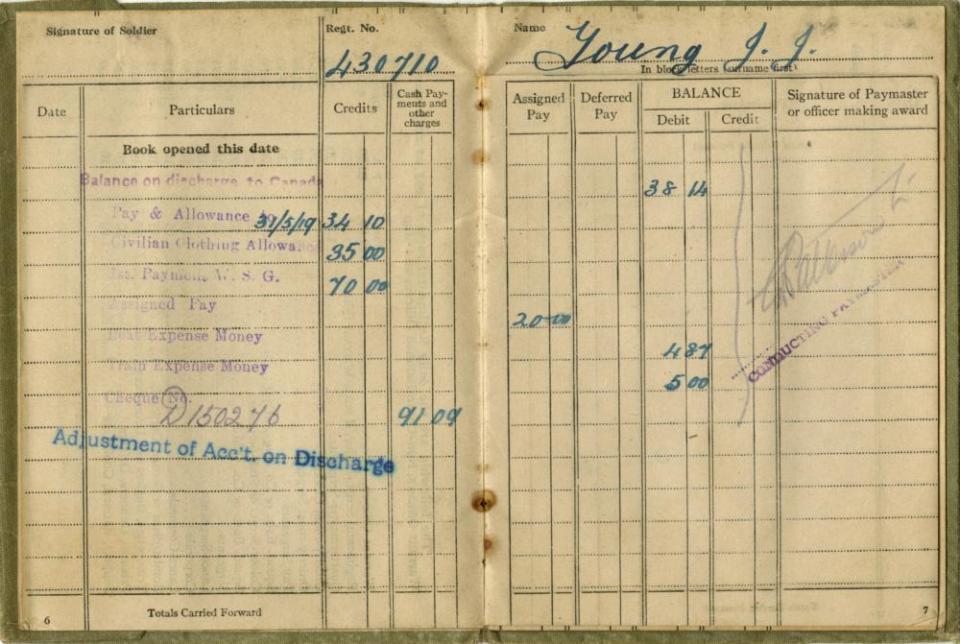 Signature of Soldier
Regt. No.
430710
Date
Particulars
Credits
Cash Pay-
ments and
other
charges
Book opened this date
Balance on discharge to Canada
Pay & Allowance to 31/5/19 34 10
Civilian Clothing Allowance 35 00
1st. Payment W. S. G. 70 00
Assigned Pay
Boat Expense Money
Train Expense Money
Cheque No.
D150276 91 09
Adjustment of Acc't. on Discharge
6
Totals Carried Forward
Name
Young J. J.
In block letters (surname first)
Assigned
Pay
Deferred
Pay
BALANCE
Debit
Credit
Signature of Paymaster
or officer making award
38 14
20 00
4 87
5 00
CONDUCTING PAYMASTER
7